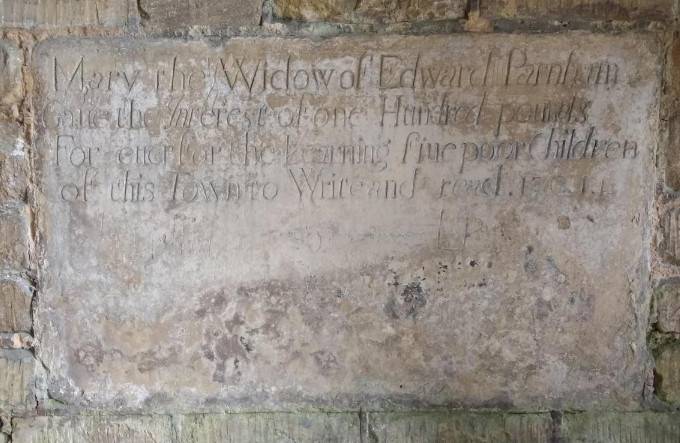 Mary the Widow of Edward Parnham
Gaue the Interest of one Hundred pounds
For euer for the Learning fiue poor Children
of this Town to Write and read.